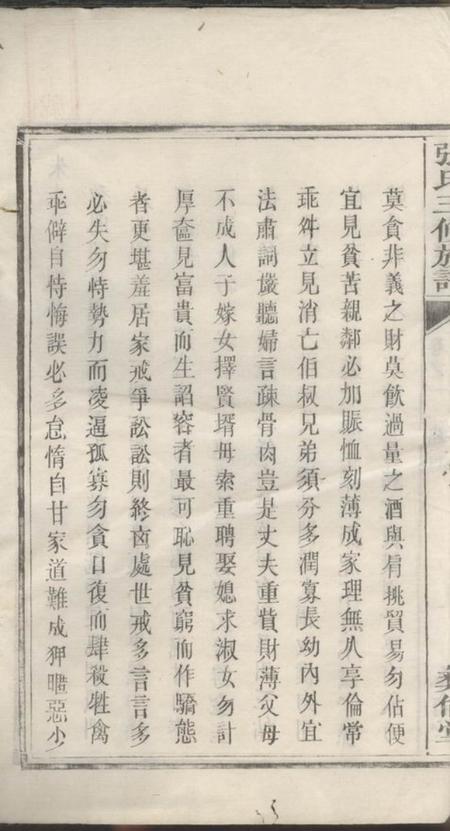 張氏三修族譜
莫貪非義之財莫飲過量之酒與肩挑貿易勿佔便
宜見貧苦親鄰必加賑恤刻薄成家理無久享倫常
乖舛立見消亡伯叔兄弟須分多潤寡長幼內外宜
法肅詞嚴聽婦言疎骨肉豈是丈夫重貲財薄父母
不成人子嫁女擇賢壻毋索重聘娶媳求淑女勿計
厚奩見富貴而生謟容者最可恥見貧窮而作驕態
者更堪羞居家戒爭訟訟則終凶處世戒多言言多
必失勿恃勢力而凌逼孤寡勿貪口復而肆殺牲禽
乖僻自恃悔誤必多怠惰自甘家道難成狎暱惡少